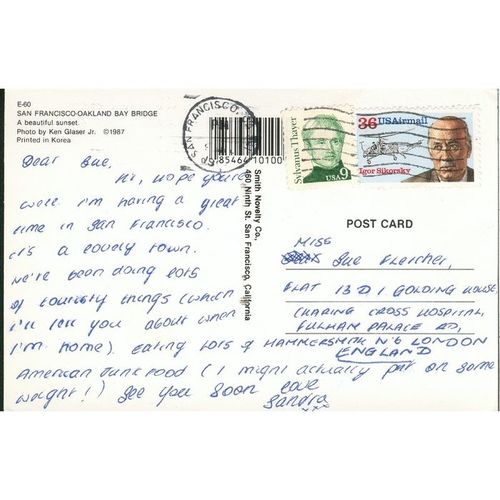 E-60
SAN FRANCISCO-OAKLAND BAY BRIDGE
A beautiful sunset.
Photo by Ken Glaser Jr. ©1987
Printed in Korea
SAN FRANCISCO,
PM
85464 10100
Sylvanus Thayer
9
USA
36 USAirmail
Igor Sikorsky
Smith Novelty Co.,
460 Ninth St. San Francisco, California
POST CARD
Dear Sue,
Hi, hope you're
well. I'm having a great
time in San Francisco.
It's a lovely town.
We've been doing lots
of touristy things (which
i'll tell you about when
I'm home). Eating lots of
American Junk food (I might actually put on some
weight!) See you soon love
Sandra
MISS
Sue Fletcher,
FLAT 13 D1 GOLDING HOUSE
CHARING CROSS HOSPITAL,
FULHAM PALACE RD,
HAMMERSMITH N'6 LONDON
ENGLAND